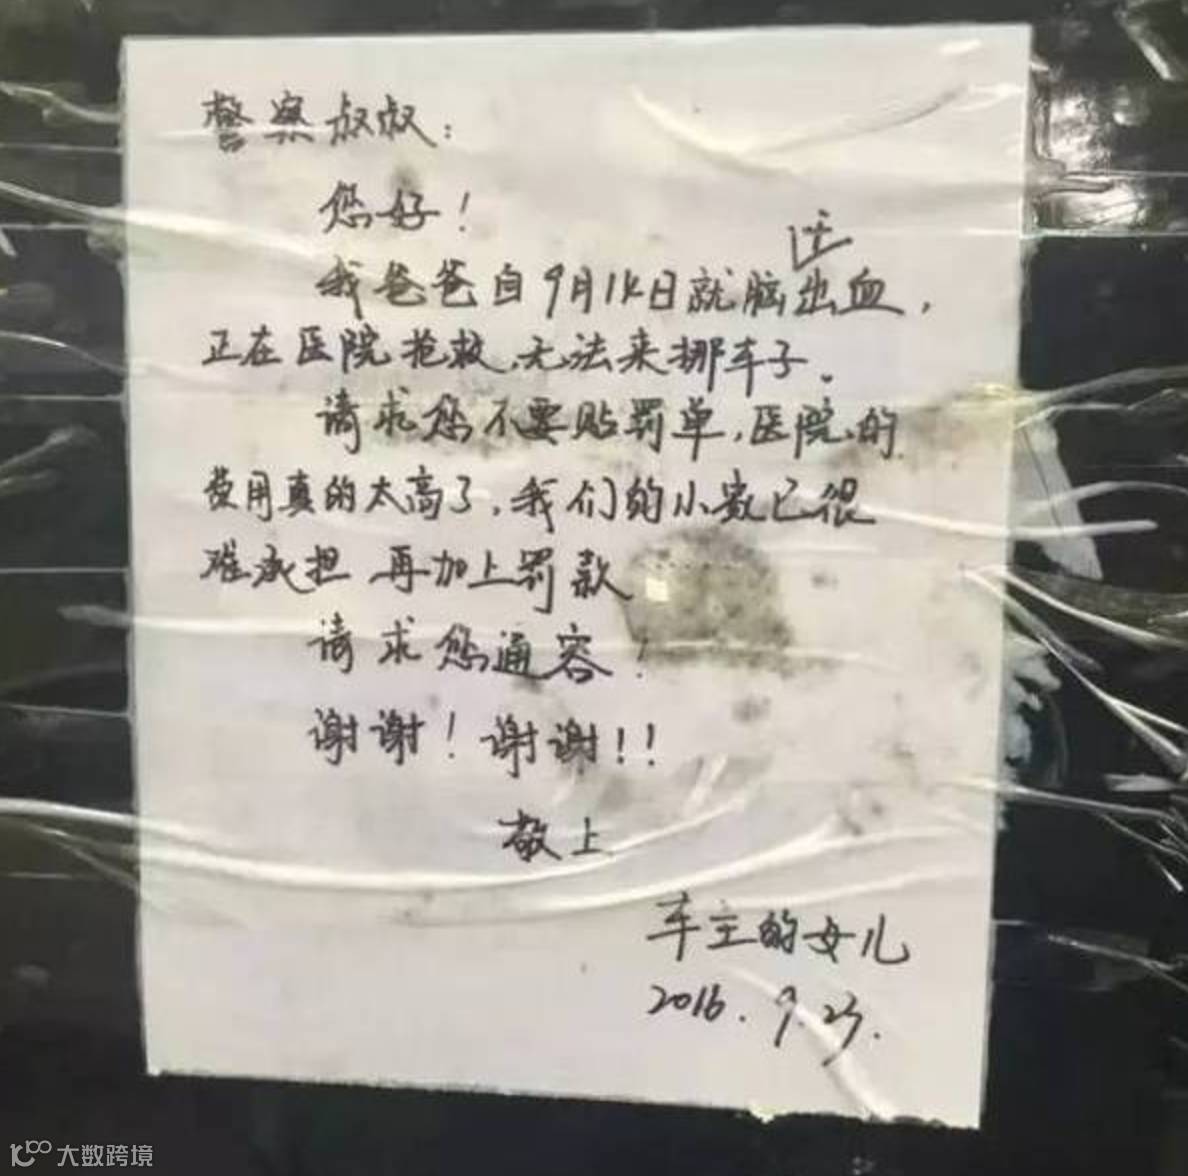 警察叔叔：
您好！
我爸爸自9月14日就脑出血，
正在医院抢救，无法来挪车子。
请求您不要贴罚单，医院的
费用真的太高了，我们的小家已很
难承担 再加上罚款
请求您通容！
谢谢！谢谢！！
敬上
车主的女儿
2016.9.23.
大数跨境